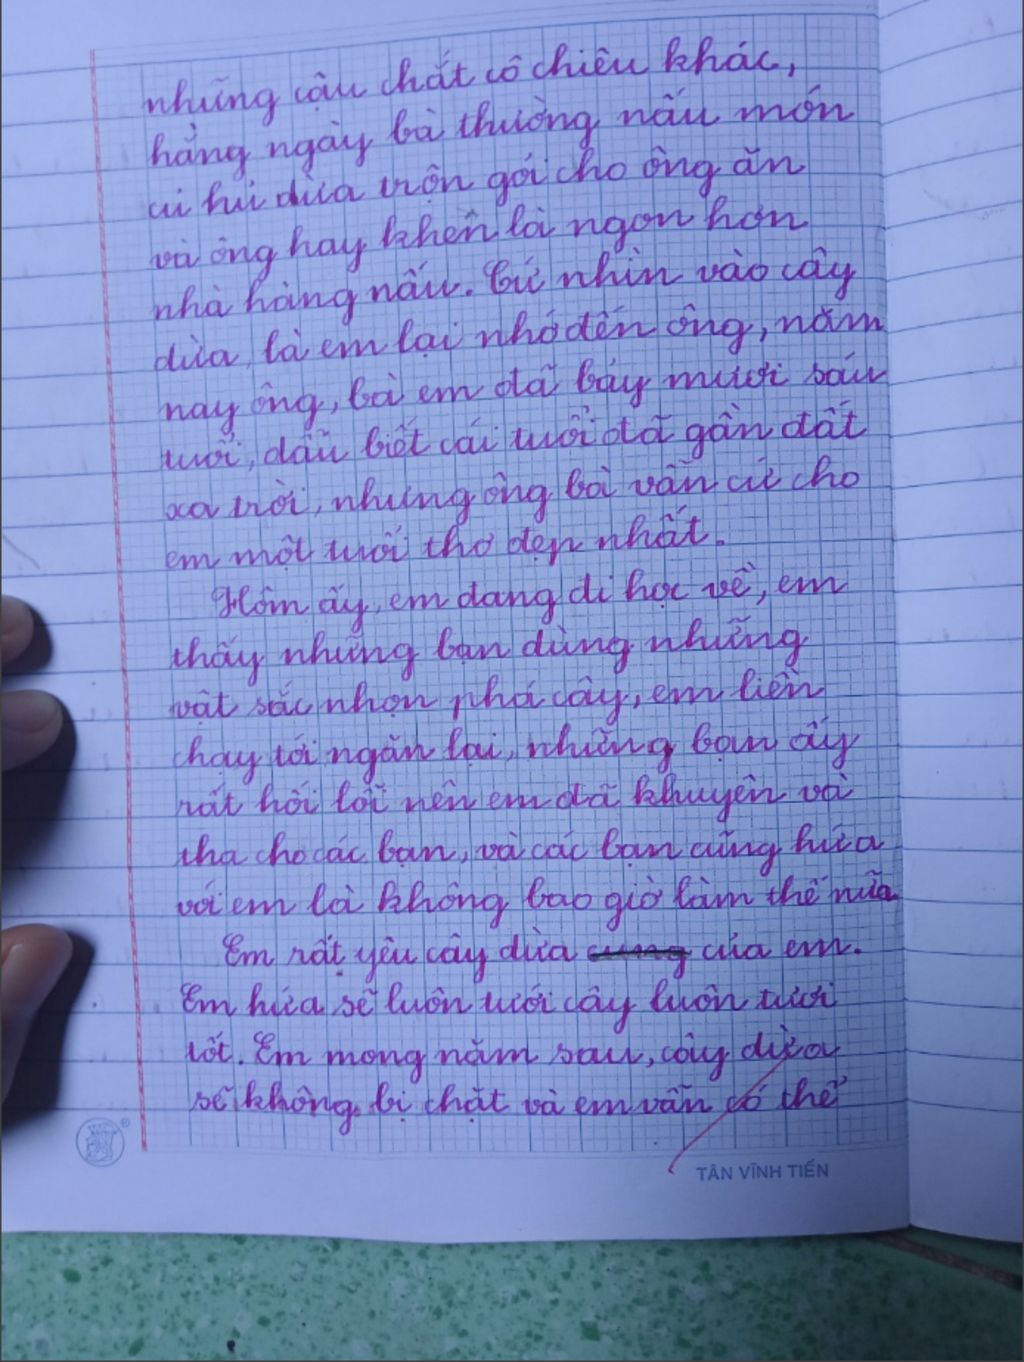 những cậu chắt cô chiêu khác,
hằng ngày bà thường nấu món
củ hủ dừa trộn gói cho ông ăn
và ông hay khen là ngon hơn
nhà hàng nấu. Cứ nhìn vào cây
dừa, là em lại nhớ đến ông, năm
nay ông, bà em đã bảy mươi sáu
tuổi, dẫu biết cái tuổi đã gần đất
xa trời, nhưng ông bà vẫn cứ cho
em một tuổi thơ đẹp nhất.
Hôm ấy, em đang đi học về, em
thấy những bạn dùng những
vật sắc nhọn phá cây, em liền
chạy tới ngăn lại, những bạn ấy
rất hối lỗi nên em đã khuyên và
tha cho các bạn, và các bạn cũng hứa
với em là không bao giờ làm thế nữa
Em rất yêu cây dừa của em.
Em hứa sẽ luôn tưới cây luôn tươi
tốt. Em mong năm sau, cây dừa
sẽ không bị chặt và em vẫn có thể
TÂN VĨNH TIẾN